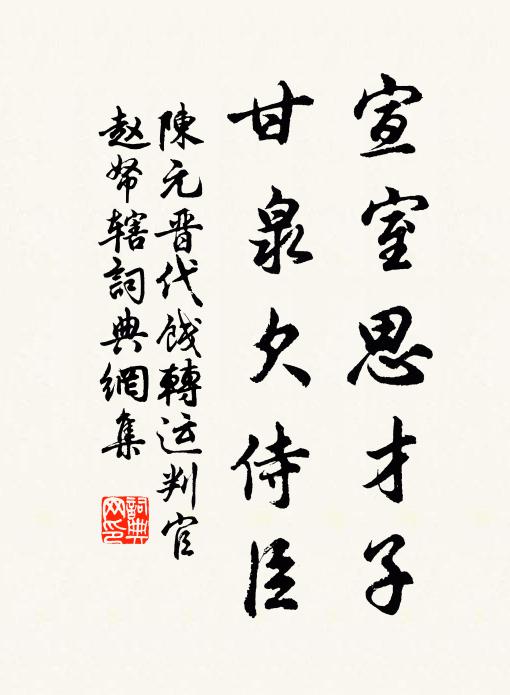 宣室思才子
甘泉欠侍臣
陳元晋代餞轉运判官
赵帑辖詞典網集
詞典网印